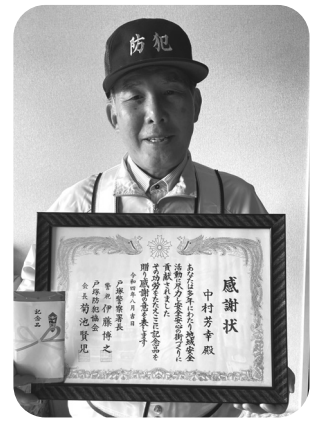 防犯
感謝状
中村芳幸殿
あなたは多年にわたり地域安全
活動に尽力し安全安心の街づくりに
貢献されました
その功労をたたえここに記念品を
贈り感謝の意を表します
令和四年八月吉日
戸塚警察署長
警視 伊藤博之
戸塚防犯協会
会長 菊池賢児
記念品